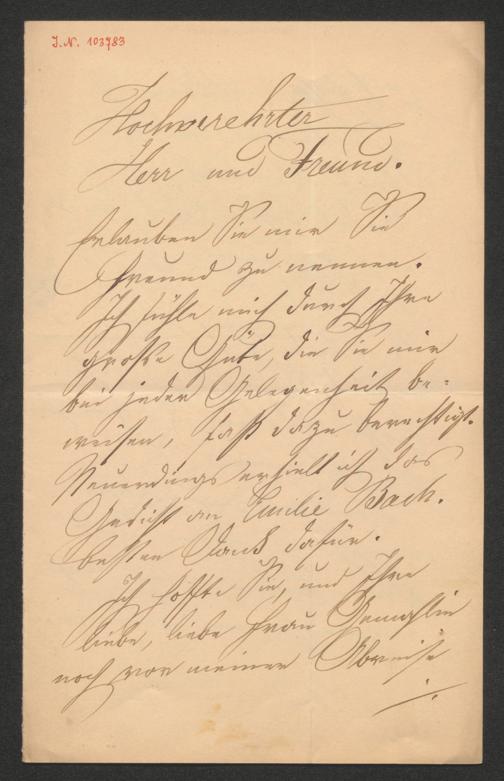 J.N. 103783
Hochverehrter
Herr und Freund.
Erlauben Sie mir Sie
Freund zu nennen.
Ich fühle mich durch Ihre
große Güte, die Sie mir
bei jeder Gelegenheit be-
weisen, fast dazu berechtigt.
Neuerdings erhielt ich das
Gedicht an Emilie Bach.
besten Dank dafür.
Ich hoffte Sie, und Ihre
liebe, liebe Frau Gemahlin
noch vor meiner Abreise
./.